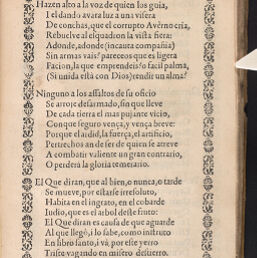 Hazen alto a la voz de quien los guia,
I el dando avara luz a una visera
De conchas, que el corrupto Averno cria,
Rebuelve al esquadron la vista fiera:
Adonde, adonde (incauta compañia)
Sin armas vais? pareceos que es ligera
Facion, la que emprendeis? o facil palma,
(Si unida està con Dios) rendir un alma?
Ninguno a los assaltos de su oficio
Se arroje desarmado, sin que lleve
De cada tierra el mas pujante vicio,
Conque seguro vença, y vença breve:
Porque el ardid, la fuerça, el artificio,
Pertrechos an de ser de quien se atreve
A combatir valiente un gran contrario,
O perderà la gloria temerario.
El Que diran, que al bien, o nunca, o tarde
Se mueve, por estarse irresoluto,
Habita en el ingrato, en el cobarde
Iudio, que es al arbol deste fruto:
El Que diran es causa de que aguarde
Al que llegò, i lo sabe, como instruto
En libro santo, i và, por este yerro
Triste vagando en misero destierro.